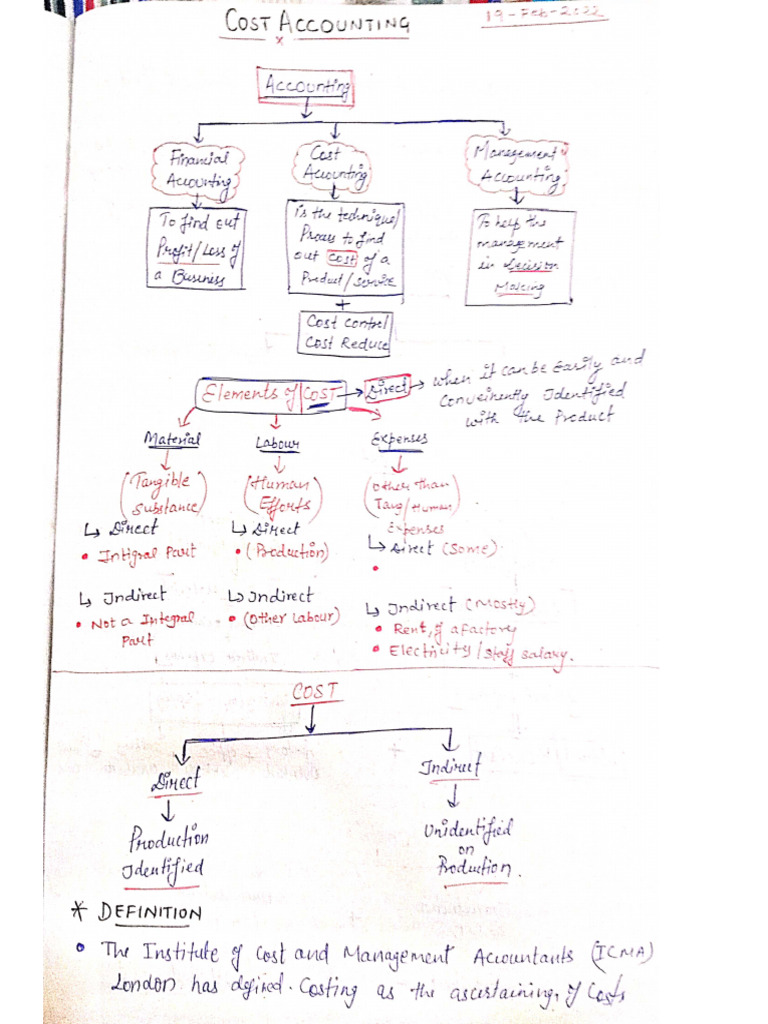 COST ACCOUNTING
19-Feb-2022
x
Accounting
Financial
Accounting
Cost
Accounting
Management
Accounting
To find out
Profit/Loss of
a Business
is the technique/
Process to find
out cost of a
Product/Service
+
Cost Control/
Cost Reduce
To help the
management
in Decision
Making
Elements of COST
Direct
When it can be Easily and
Conveinently Identified
with the Product
Material
Labour
Expenses
(Tangible
Substance)
(Human
Efforts)
(Other than
Tang/Human)
Expenses
Direct
• Intigral Part
Direct
• (Production)
Direct (Some)
•
Indirect
• Not a Integral
Part
Indirect
• (Other Labour)
Indirect (Mostly)
• Rent, of a factory
• Electricity/Staff salary.
COST
Direct
Indirect
Production
Identified
Unidentified
on
Production.
* DEFINITION
• The Institute of Cost and Management Accountants (ICMA)
London has defined. Costing as the ascertaining, of Costs